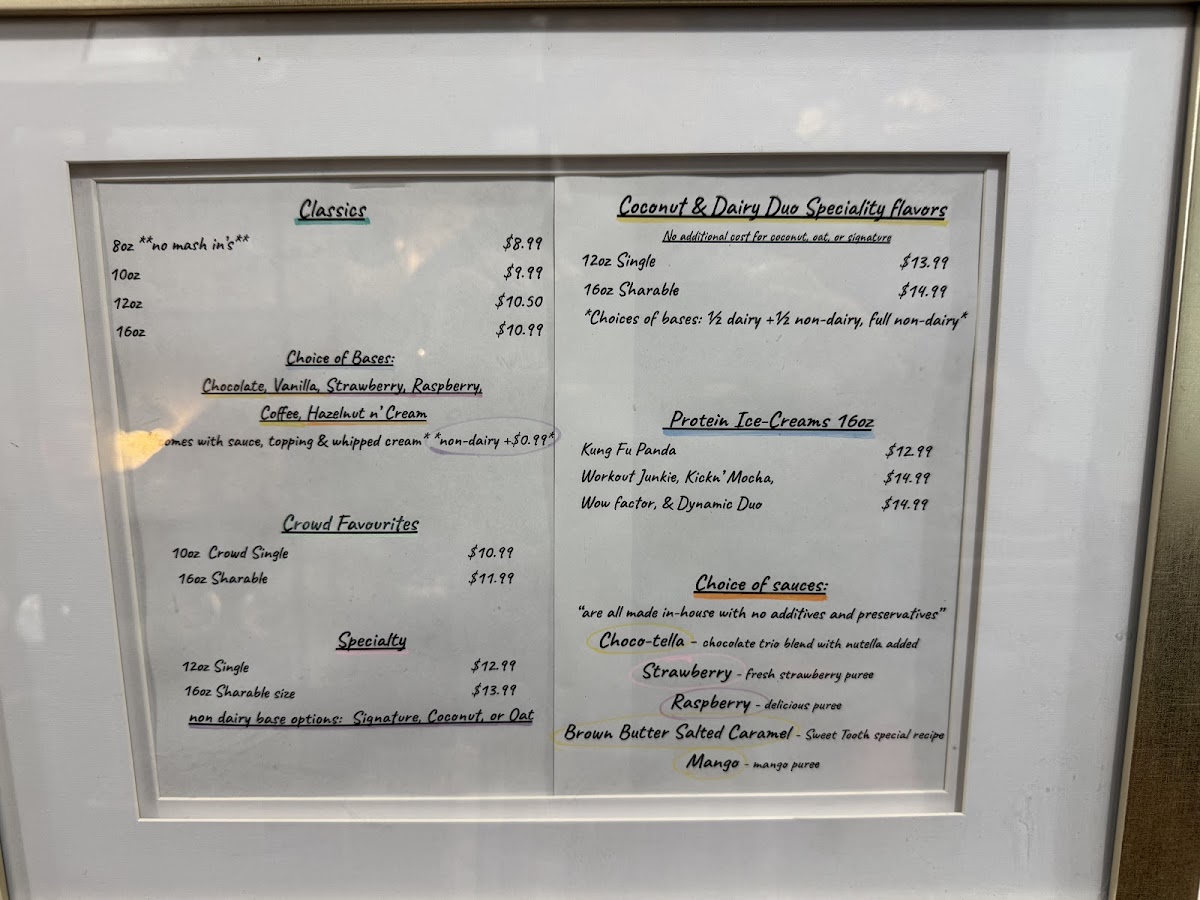 Classics
8oz **no mash in's** $8.99
10oz $9.99
12oz $10.50
16oz $10.99
Choice of Bases:
Chocolate, Vanilla, Strawberry, Raspberry,
Coffee, Hazelnut n' Cream
with sauce, topping & whipped cream* *non-dairy +$0.99*
Crowd Favourites
10oz Crowd Single $10.99
16oz Sharable $11.99
Specialty
12oz Single $12.99
16oz Sharable size $13.99
non dairy base options: Signature, Coconut, or Oat
Coconut & Dairy Duo Speciality flavors
No additional cost for coconut, oat, or signature
12oz Single $13.99
16oz Sharable $14.99
*Choices of bases: ½ dairy +½ non-dairy, full non-dairy*
Protein Ice-Creams 16oz
Kung Fu Panda $12.99
Workout Junkie, Kickn' Mocha, $14.99
Wow factor, & Dynamic Duo $14.99
Choice of sauces:
"are all made in-house with no additives and preservatives"
Choco-tella - chocolate trio blend with nutella added
Strawberry - fresh strawberry puree
Raspberry - delicious puree
Brown Butter Salted Caramel - Sweet Tooth special recipe
Mango - mango puree